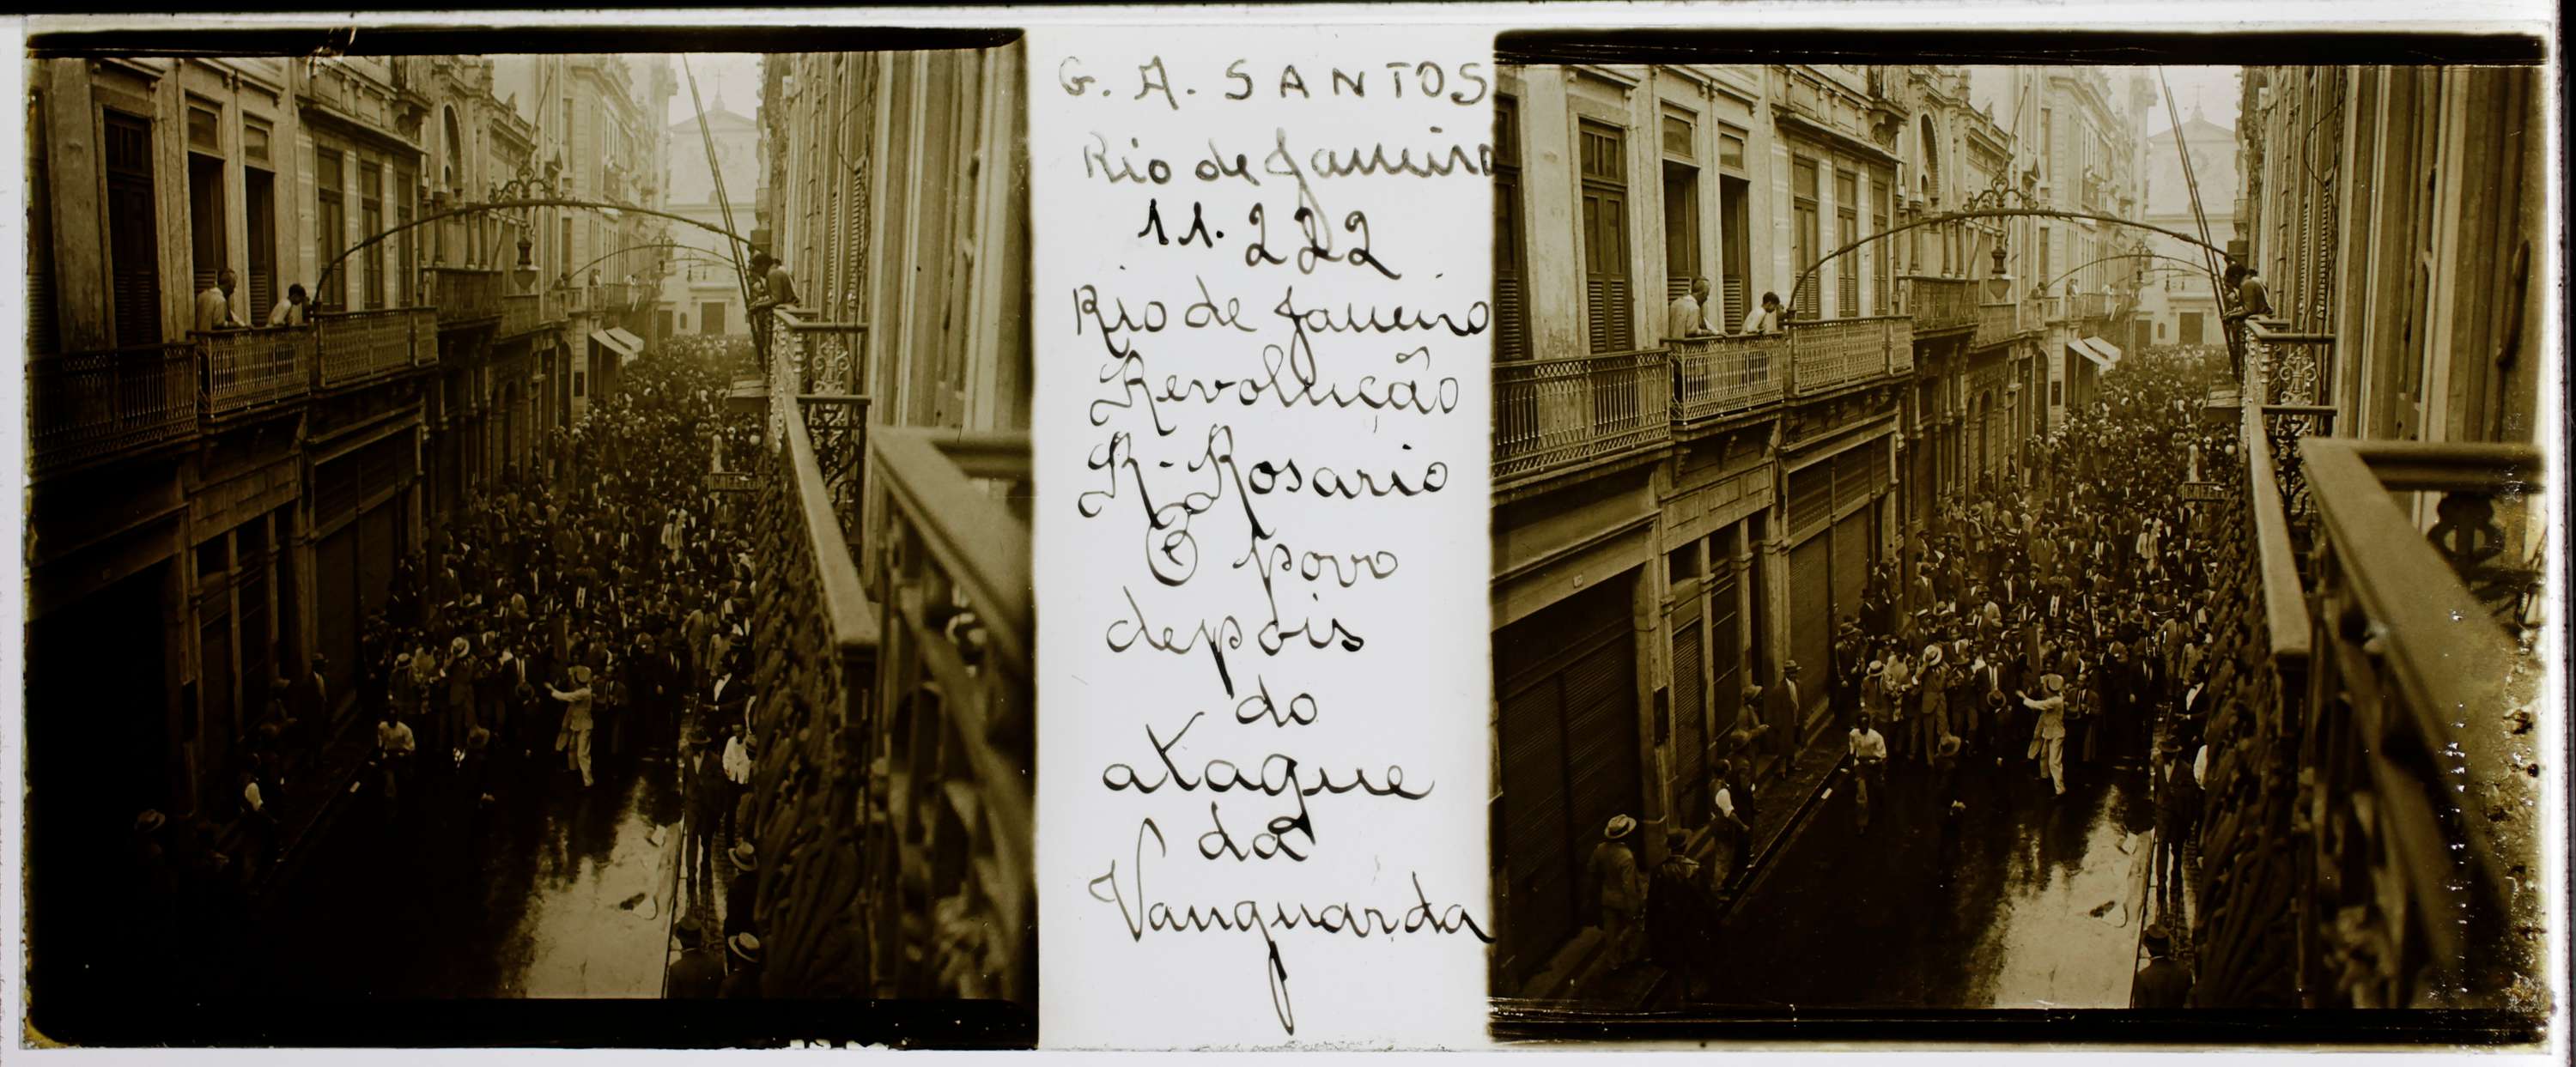 G. A. SANTOS
Rio de Janeiro
11.222
Rio de Janeiro
Revolução
R. Rosario
O povo
depois
do
ataque
da
Vanguarda